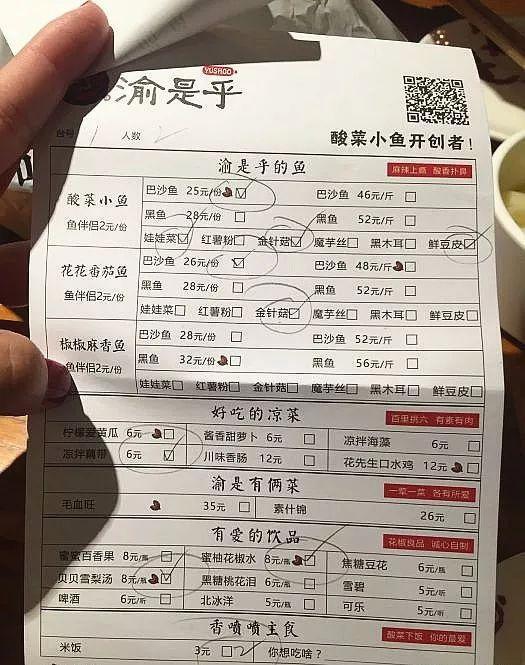 YUSHOO
渝是乎
台号 1 人数 2
酸菜小鱼开创者！
渝是乎的鱼 麻辣上瘾 酸香扑鼻
酸菜小鱼
鱼伴侣2元/份
巴沙鱼 25元/份 巴沙鱼 46元/斤
黑鱼 28元/份 黑鱼 52元/斤
娃娃菜 红薯粉 金针菇 魔芋丝 黑木耳 鲜豆皮
花花番茄鱼
鱼伴侣2元/份
巴沙鱼 26元/份 巴沙鱼 48元/斤
黑鱼 28元/份 黑鱼 52元/斤
娃娃菜 红薯粉 金针菇 魔芋丝 黑木耳 鲜豆皮
椒椒麻香鱼
鱼伴侣2元/份
巴沙鱼 28元/份 巴沙鱼 52元/斤
黑鱼 32元/份 黑鱼 56元/斤
娃娃菜 红薯粉 金针菇 魔芋丝 黑木耳 鲜豆皮
好吃的凉菜 百里挑六 有素有肉
柠檬爱黄瓜 6元 酱香甜萝卜 6元 凉拌海藻 6元
凉拌藕带 6元 川味香肠 12元 花先生口水鸡 12元
渝是有俩菜 一荤一菜 各有所爱
毛血旺 35元 素什锦 26元
有爱的饮品 花椒良品 诚心自制
蜜蜜百香果 8元/瓶 蜜柚花椒水 8元/瓶 焦糖豆花 6元/瓶
贝贝雪梨汤 8元/瓶 黑糖桃花泪 6元/瓶 雪碧 5元/听
啤酒 6元/听 北冰洋 5元/瓶 可乐 5元/听
香喷喷主食 酸菜下饭 你的最爱
米饭 3元 2 你想吃啥？